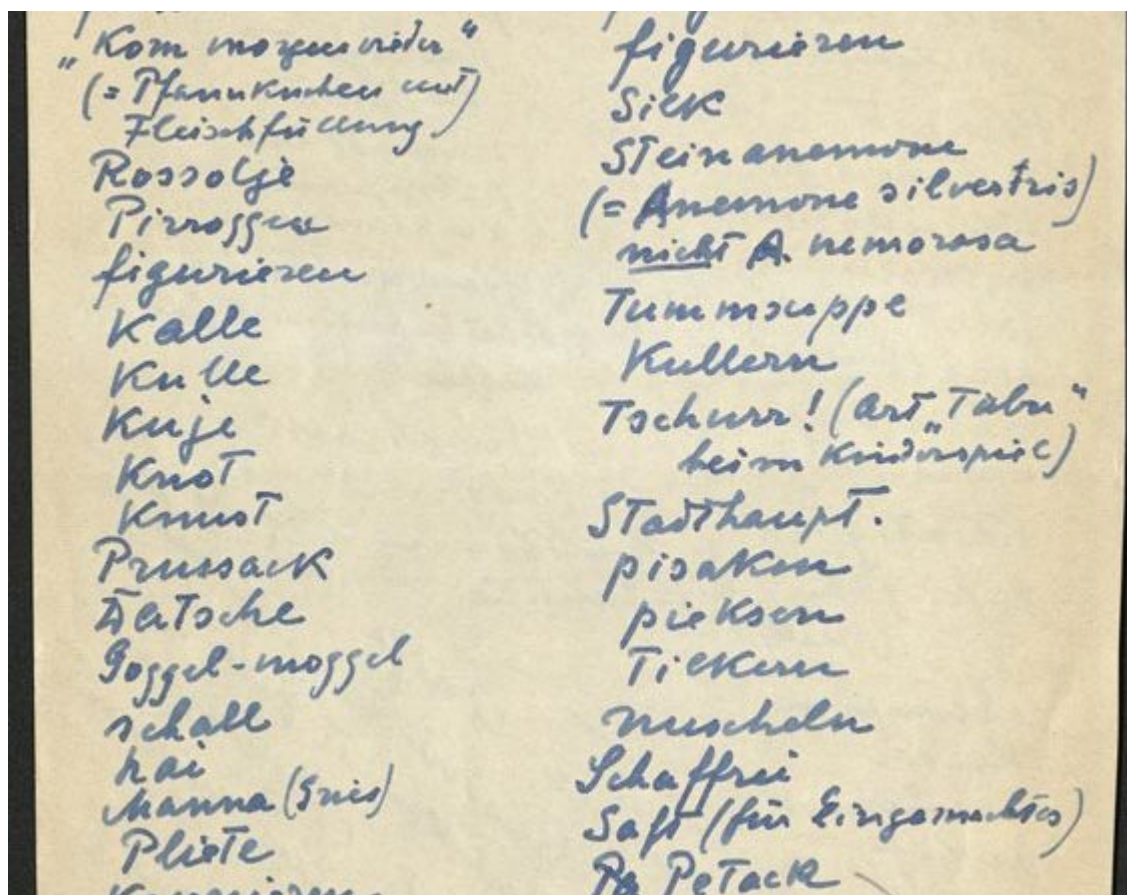 "Kom morgen wieder"
(= Pfannkuchen mit
Fleischfüllung)
Rossolje
Pirroggen
figurieren
Kalle
Kulle
Kuje
Knot
Knust
Prussack
Datsche
Goggel-moggel
schall
hai
Manna (Gries)
Pliete
figurieren
Silk
Steinanemone
(= Anemone silvestris)
nicht A. nemorosa
Tummsuppe
Kullern
Tschurr! (Art "Tabu"
beim Kinderspiel)
Stadthaupt.
pisaken
pieksen
Tilkern
nuscheln
Schafferei
Saft (für Eingemachtes)
Pa Petack